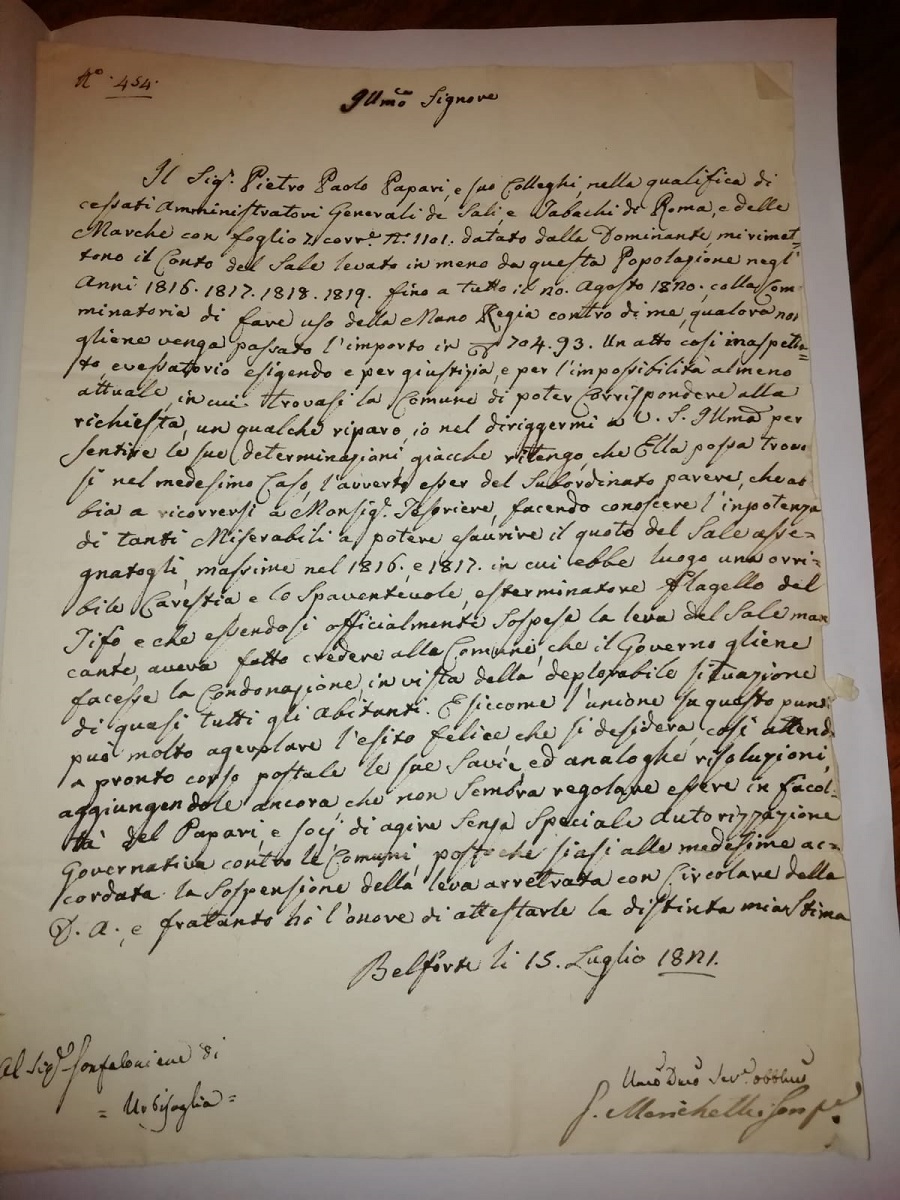 N° 454.
Illmo Signore
Il Sigr. Pietro Paolo Papari, e suo Colleghi, nella qualifica di
cessati Amministratori Generali de Sali, e Tabachi di Roma, e delle
Marche con foglio 7. corre. N.° 1101. datato dalla Dominante, mi rimet=
tono il Conto del Sale levato in meno da questa Popolazione negl'
Anni 1816. 1817. 1818. 1819. fino a tutto il 20. Agosto 1820., colla Com=
minatoria di fare uso della Mano Regia contro di me, qualora non
gliene venga passato l'importo in 704.93. Un atto così inaspetta=
to, e vessatorio esigendo e per giustizia, e per l'impossibilità almeno
attuale, in cui trovasi la Comune di poter Corrispondere alla
richiesta, un qualche riparo, io nel diriggermi a V. S. Illma per
Sentire le sue determinazioni, giacchè ritengo, che Ella possa trovar
si nel medesimo Caso, l'averto esser del Subordinato parere, che ab
bia a ricorrersi a Monsigr. Tesoriere, facendo conoscere l'inpotenza
di tanti Miserabili a potere esaurire il quoto del Sale asse=
gnatogli, massime nel 1816. e 1817. in cui ebbe luogo una orri=
bile Carestia e lo Spaventevole, esterminatore Flagello del
Tifo, e che essendosi officialmente Sospese la leva del Sale man
cante, aveva fatto credere alla Comuni, che il Governo gliene
facesse la Condonazione, in vista della deplorabile situazione
di quasi tutti gli Abitanti. E siccome l'unione su questo punto
può molto agevolare l'esito felice che si desidera, così attendo
a pronto corso postale le sue Savie, ed analoghe risoluzioni,
aggiungendole ancora che non Sembra regolare essere in facol=
tà del Papari, e socj di agire Senza Speciale Autorizzazione
Governativa contro le Comuni, postochè siasi alle medesime ac=
cordata la Sospensione della leva arretrata con Circolare della
D. A., e fratanto hò l'onore di attestarle la distinta mia Stima
Belforte li 15. Luglio 1821.
Al Sigr. Gonfaloniere di
= Urbisaglia =
Umo Dmo Serv.e obblmo